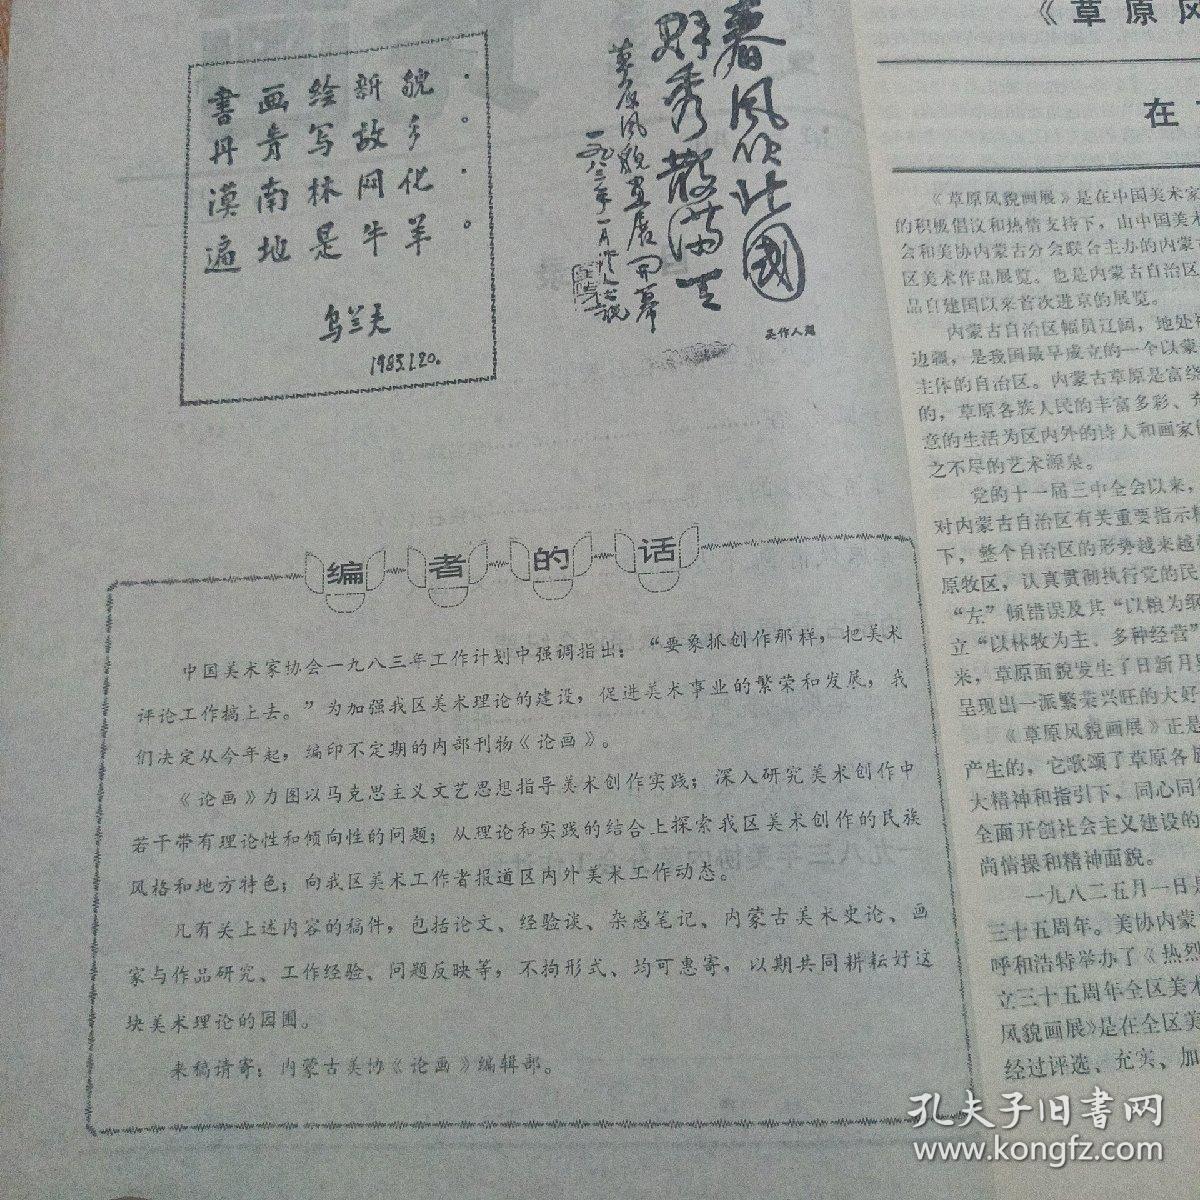 書画绘新貌。
丹青写故乡。
漠南林网化。
遍地是牛羊。
乌兰夫
1983.1.20.
春风吹北国
群秀散满天
草原风貌画展开幕
一九八三年一月作人书祝
吴作人题
编者的话
中国美术家协会一九八三年工作计划中强调指出：“要象抓创作那样，把美术
评论工作搞上去。”为加强我区美术理论的建设，促进美术事业的繁荣和发展，我
们决定从今年起，编印不定期的内部刊物《论画》。
《论画》力图以马克思主义文艺思想指导美术创作实践；深入研究美术创作中
若干带有理论性和倾向性的问题；从理论和实践的结合上探索我区美术创作的民族
风格和地方特色；向我区美术工作者报道区内外美术工作动态。
凡有关上述内容的稿件，包括论文、经验谈、杂感笔记、内蒙古美术史论、画
家与作品研究、工作经验、问题反映等，不拘形式、均可惠寄，以期共同耕耘好这
块美术理论的园圃。
来稿请寄：内蒙古美协《论画》编辑部。
《草原风
在
《草原风貌画展》是在中国美术家
的积极倡议和热情支持下，由中国美
会和美协内蒙古分会联合主办的内蒙
区美术作品展览。也是内蒙古自治区
品自建国以来首次进京的展览。
内蒙古自治区幅员辽阔，地处祖
边疆，是我国最早成立的一个以蒙
主体的自治区。内蒙古草原是富饶
的，草原各族人民的丰富多彩、充
意的生活为区内外的诗人和画家
之不尽的艺术源泉。
党的十一届三中全会以来，
对内蒙古自治区有关重要指示精
下，整个自治区的形势越来越
原牧区，认真贯彻执行党的民
“左”倾错误及其“以粮为纲
立“以林牧为主、多种经营”
来，草原面貌发生了日新月
呈现出一派繁荣兴旺的大好
《草原风貌画展》正是
产生的，它歌颂了草原各族
大精神和指引下，同心同
全面开创社会主义建设的
尚情操和精神面貌。
一九八二五月一日是
三十五周年。美协内蒙
呼和浩特举办了《热烈
立三十五周年全区美术
风貌画展》是在全区美
经过评选、充实、加
孔夫子旧书网
www.kongfz.com